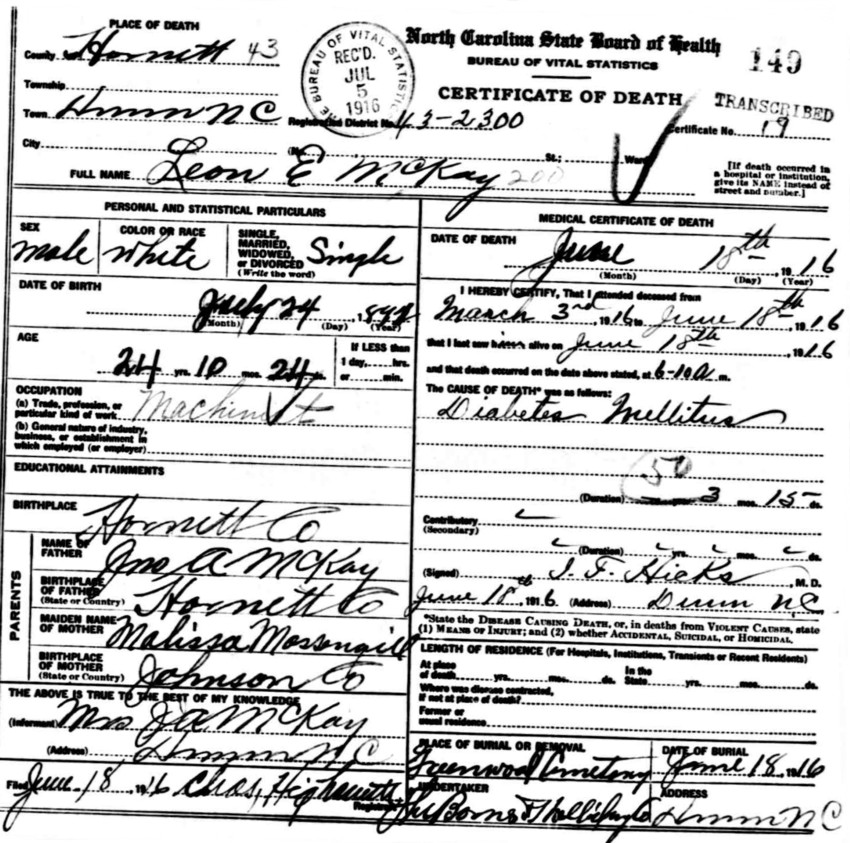 PLACE OF DEATH
County Harnett 43
Township
Town Dunn NC
City
BUREAU OF VITAL STATISTICS
REC'D.
JUL
5
1916
North Carolina State Board of Health
BUREAU OF VITAL STATISTICS
149
CERTIFICATE OF DEATH
TRANSCRIBED
Registration District No. 43-2300
Certificate No. 19
(No. St.; Ward)
[If death occurred in a hospital or institution, give its NAME instead of street and number.]
FULL NAME Leon E McKay 200
PERSONAL AND STATISTICAL PARTICULARS
SEX
male
COLOR OR RACE
white
SINGLE, MARRIED, WIDOWED, OR DIVORCED
(Write the word)
Single
DATE OF BIRTH
July 24, 1892
(Month) (Day) (Year)
AGE
24 yrs. 10 mos. 24 ds.
If LESS than
1 day, hrs.
or min.
OCCUPATION
(a) Trade, profession, or
particular kind of work
Machinist
(b) General nature of industry,
business, or establishment in
which employed (or employer)
EDUCATIONAL ATTAINMENTS
BIRTHPLACE
Harnett Co
PARENTS
NAME OF
FATHER
Jno A McKay
BIRTHPLACE
OF FATHER
(State or Country)
Harnett Co
MAIDEN NAME
OF MOTHER
Malissa Massengill
BIRTHPLACE
OF MOTHER
(State or Country)
Johnson Co
THE ABOVE IS TRUE TO THE BEST OF MY KNOWLEDGE
(Informant) Mrs J A McKay
(Address) Dunn N C
Filed June 18 1916 Chas, Highsmith
Registrar
MEDICAL CERTIFICATE OF DEATH
DATE OF DEATH
June 18th 1916
(Month) (Day) (Year)
I HEREBY CERTIFY, That I attended deceased from
March 3rd 1916 to June 18th, 1916
that I last saw alive on June 18th, 1916
and that death occurred on the date above stated, at 6-10 a m.
The CAUSE OF DEATH* was as follows:
Diabetes Mellitus
50
(Duration) yrs. 3 mos. 15 ds.
Contributory
(Secondary)
(Duration) yrs. mos. ds.
(Signed) J. F. Hicks, M. D.
June 18th, 1916 (Address) Dunn N C
*State the DISEASE CAUSING DEATH, or, in deaths from VIOLENT CAUSES, state
(1) MEANS OF INJURY; and (2) whether ACCIDENTAL, SUICIDAL, or HOMICIDAL.
LENGTH OF RESIDENCE (For Hospitals, Institutions, Transients or Recent Residents)
At place
of death yrs. mos. ds.
In the
State yrs. mos. ds.
Where was disease contracted,
if not at place of death?
Former or
usual residence
PLACE OF BURIAL OR REMOVAL
Greenwood Cemetery
DATE OF BURIAL
June 18 1916
UNDERTAKER
Barnes & Holliday Co
ADDRESS
Dunn N C